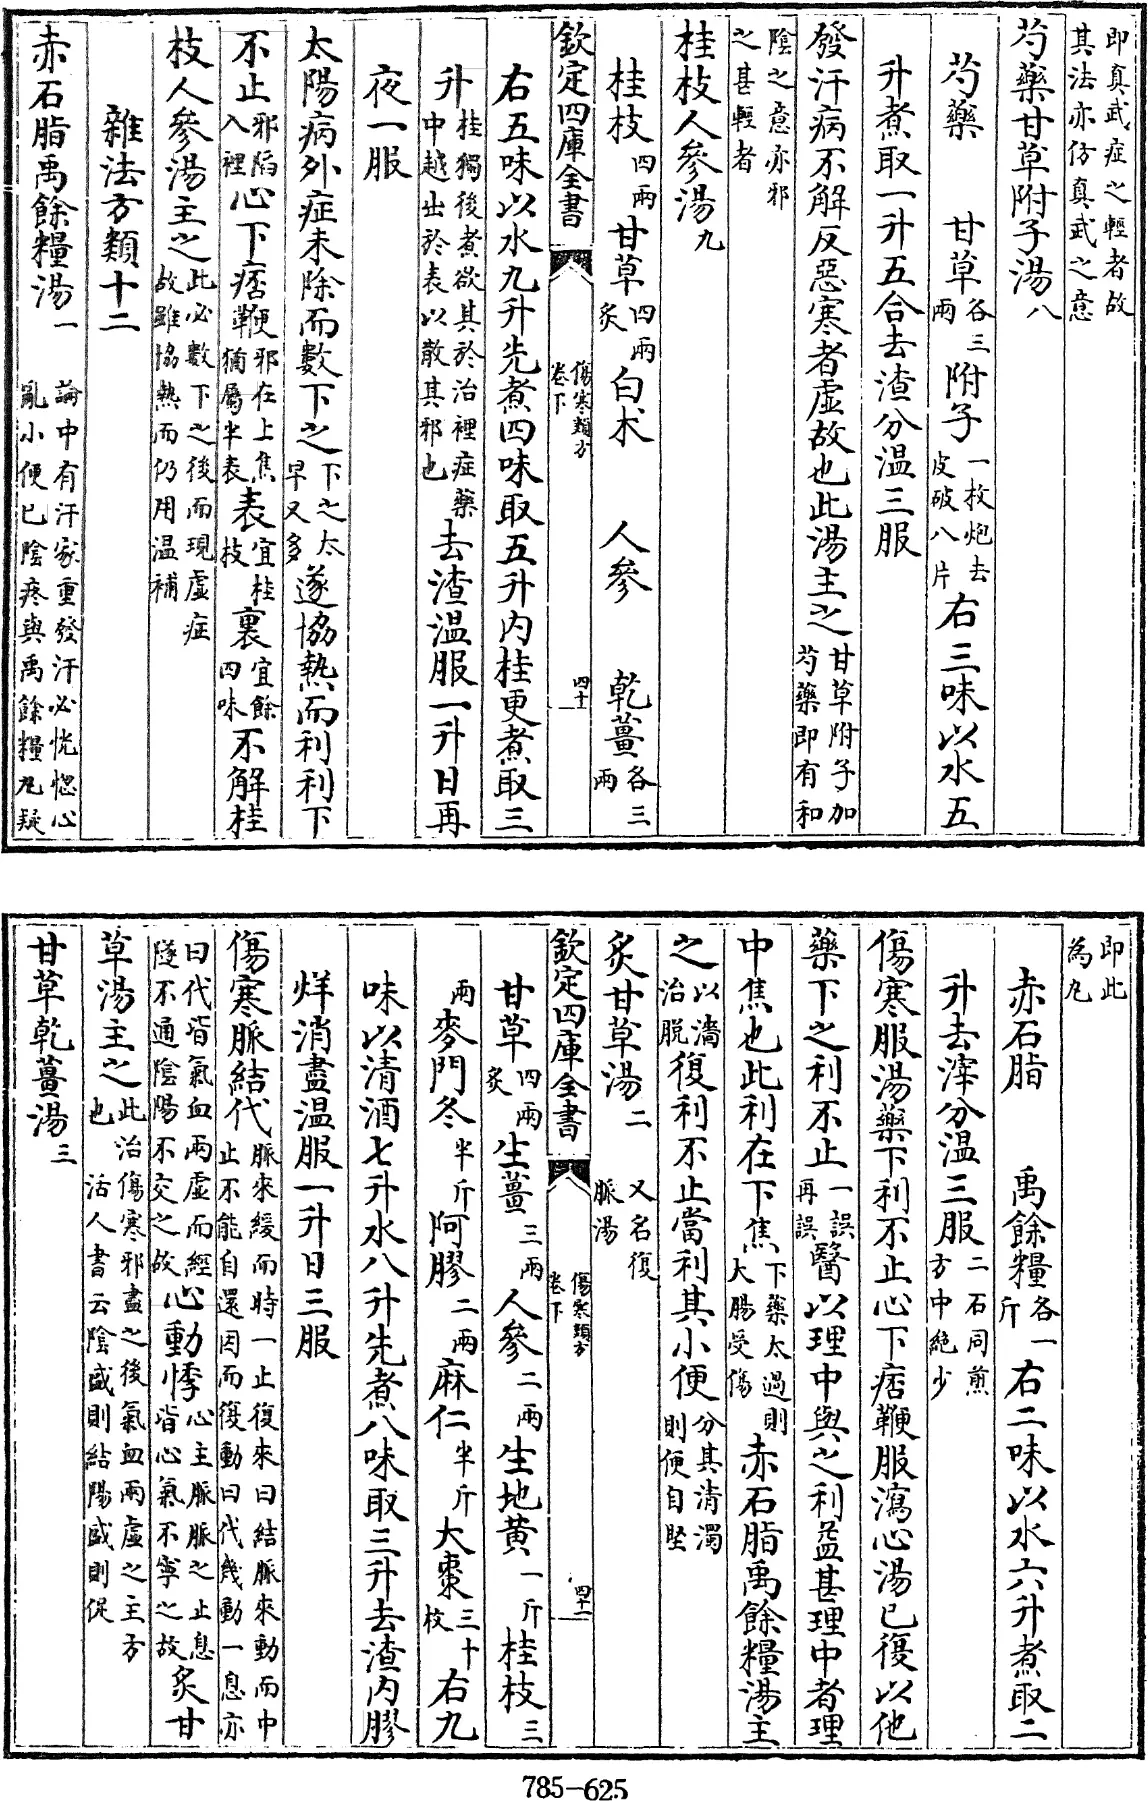 即真武症之輕者故其法亦仿真武之意
芍藥甘草附子湯八
芍藥 甘草各三兩 附子一枚炮去皮破八片 右三味以水五
升煮取一升五合去渣分温三服
發汗病不解反惡寒者虛故也此湯主之甘草附子加芍藥即有和
陰之意亦邪之甚輕者
桂枝人參湯九
桂枝四兩 甘草四兩炙 白朮 人參 乾薑各三兩
欽定四庫全書 傷寒類方卷下 四十
右五味以水九升先煮四味取五升内桂更煮取三
升桂獨後煮欲其於治裡症藥中越出於表以散其邪也去渣温服一升日再
夜一服
太陽病外症未除而數下之下之太早又多遂協熱而利利下
不止邪陷入裡心下痞鞕邪在上焦猶屬半表表宜桂枝裏宜餘四味不解桂
枝人參湯主之此必數下之後而現虛症故雖協熱而仍用温補
雜法方類十二
赤石脂禹餘糧湯一 論中有汗家重發汗必恍惚心亂小便已陰疼與禹餘糧丸疑
即此為丸
赤石脂 禹餘糧各一斤 右二味以水六升煮取二
升去滓分温三服二石同煎方中絶少
傷寒服湯藥下利不止心下痞鞕服瀉心湯已復以他
藥下之利不止一誤再誤醫以理中與之利益甚理中者理
中焦也此利在下焦下藥太過則大腸受傷赤石脂禹餘糧湯主
之以濇治脱復利不止當利其小便分其清濁則便自堅
炙甘草湯二 又名復脈湯
欽定四庫全書 傷寒類方卷下 四十一
甘草四兩炙 生薑三兩 人參二兩 生地黄一斤 桂枝三
兩 麥門冬半斤 阿膠二兩 麻仁半斤 大棗三十枚 右九
味以清酒七升水八升先煮八味取三升去渣内膠
烊消盡温服一升日三服
傷寒脈結代脈來緩而時一止復來曰結脈來動而中止不能自還因而復動曰代幾動一息亦
曰代皆氣血兩虛而經隧不通陰陽不交之故心動悸心主脈脈之止息皆心氣不寧之故炙甘
草湯主之此治傷寒邪盡之後氣血兩虛之主方也 活人書云陰盛則結陽盛則促
甘草乾薑湯三
785-625